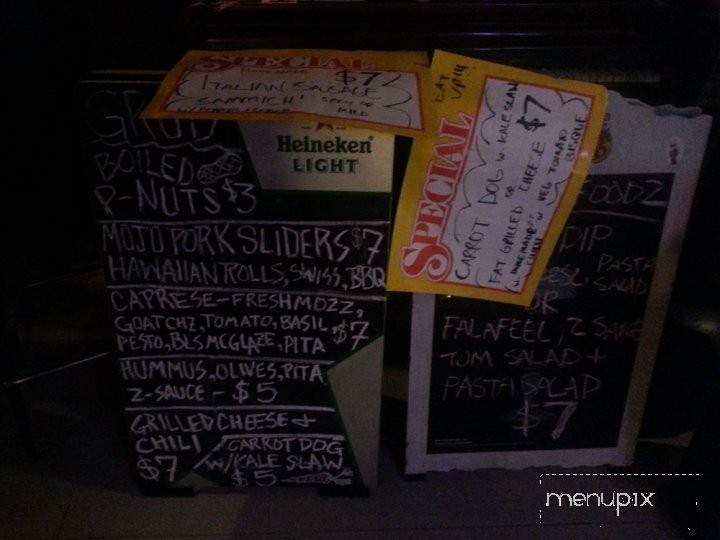 SPECIAL
$7
ITALIAN SAUSAGE
SAMMICH!
MILD
SPECIAL
EAT
CARROT DOG W KALE SLAW
OR
FAT GRILLED CHEESE $7
W VEG TOMATO
BISQUE
GRUB
Heineken
LIGHT
BOILED
P-NUTS $3
MOJO PORK SLIDERS $7
HAWAIIAN ROLLS, SWISS, BBQ
CAPRESE-FRESH MOZZ,
GOAT CHZ, TOMATO, BASIL $7
PESTO, BLSMC GLAZE, PITA
HUMMUS, OLIVES, PITA
Z-SAUCE - $5
GRILLED CHEESE +
CHILI
$7
CARROT DOG
W/KALE SLAW
$5
FOODZ
DIP
PASTA
SALAD
OR
FALAFEEL, Z SAUCE
TOM SALAD +
PASTA SALAD
$7
menupix